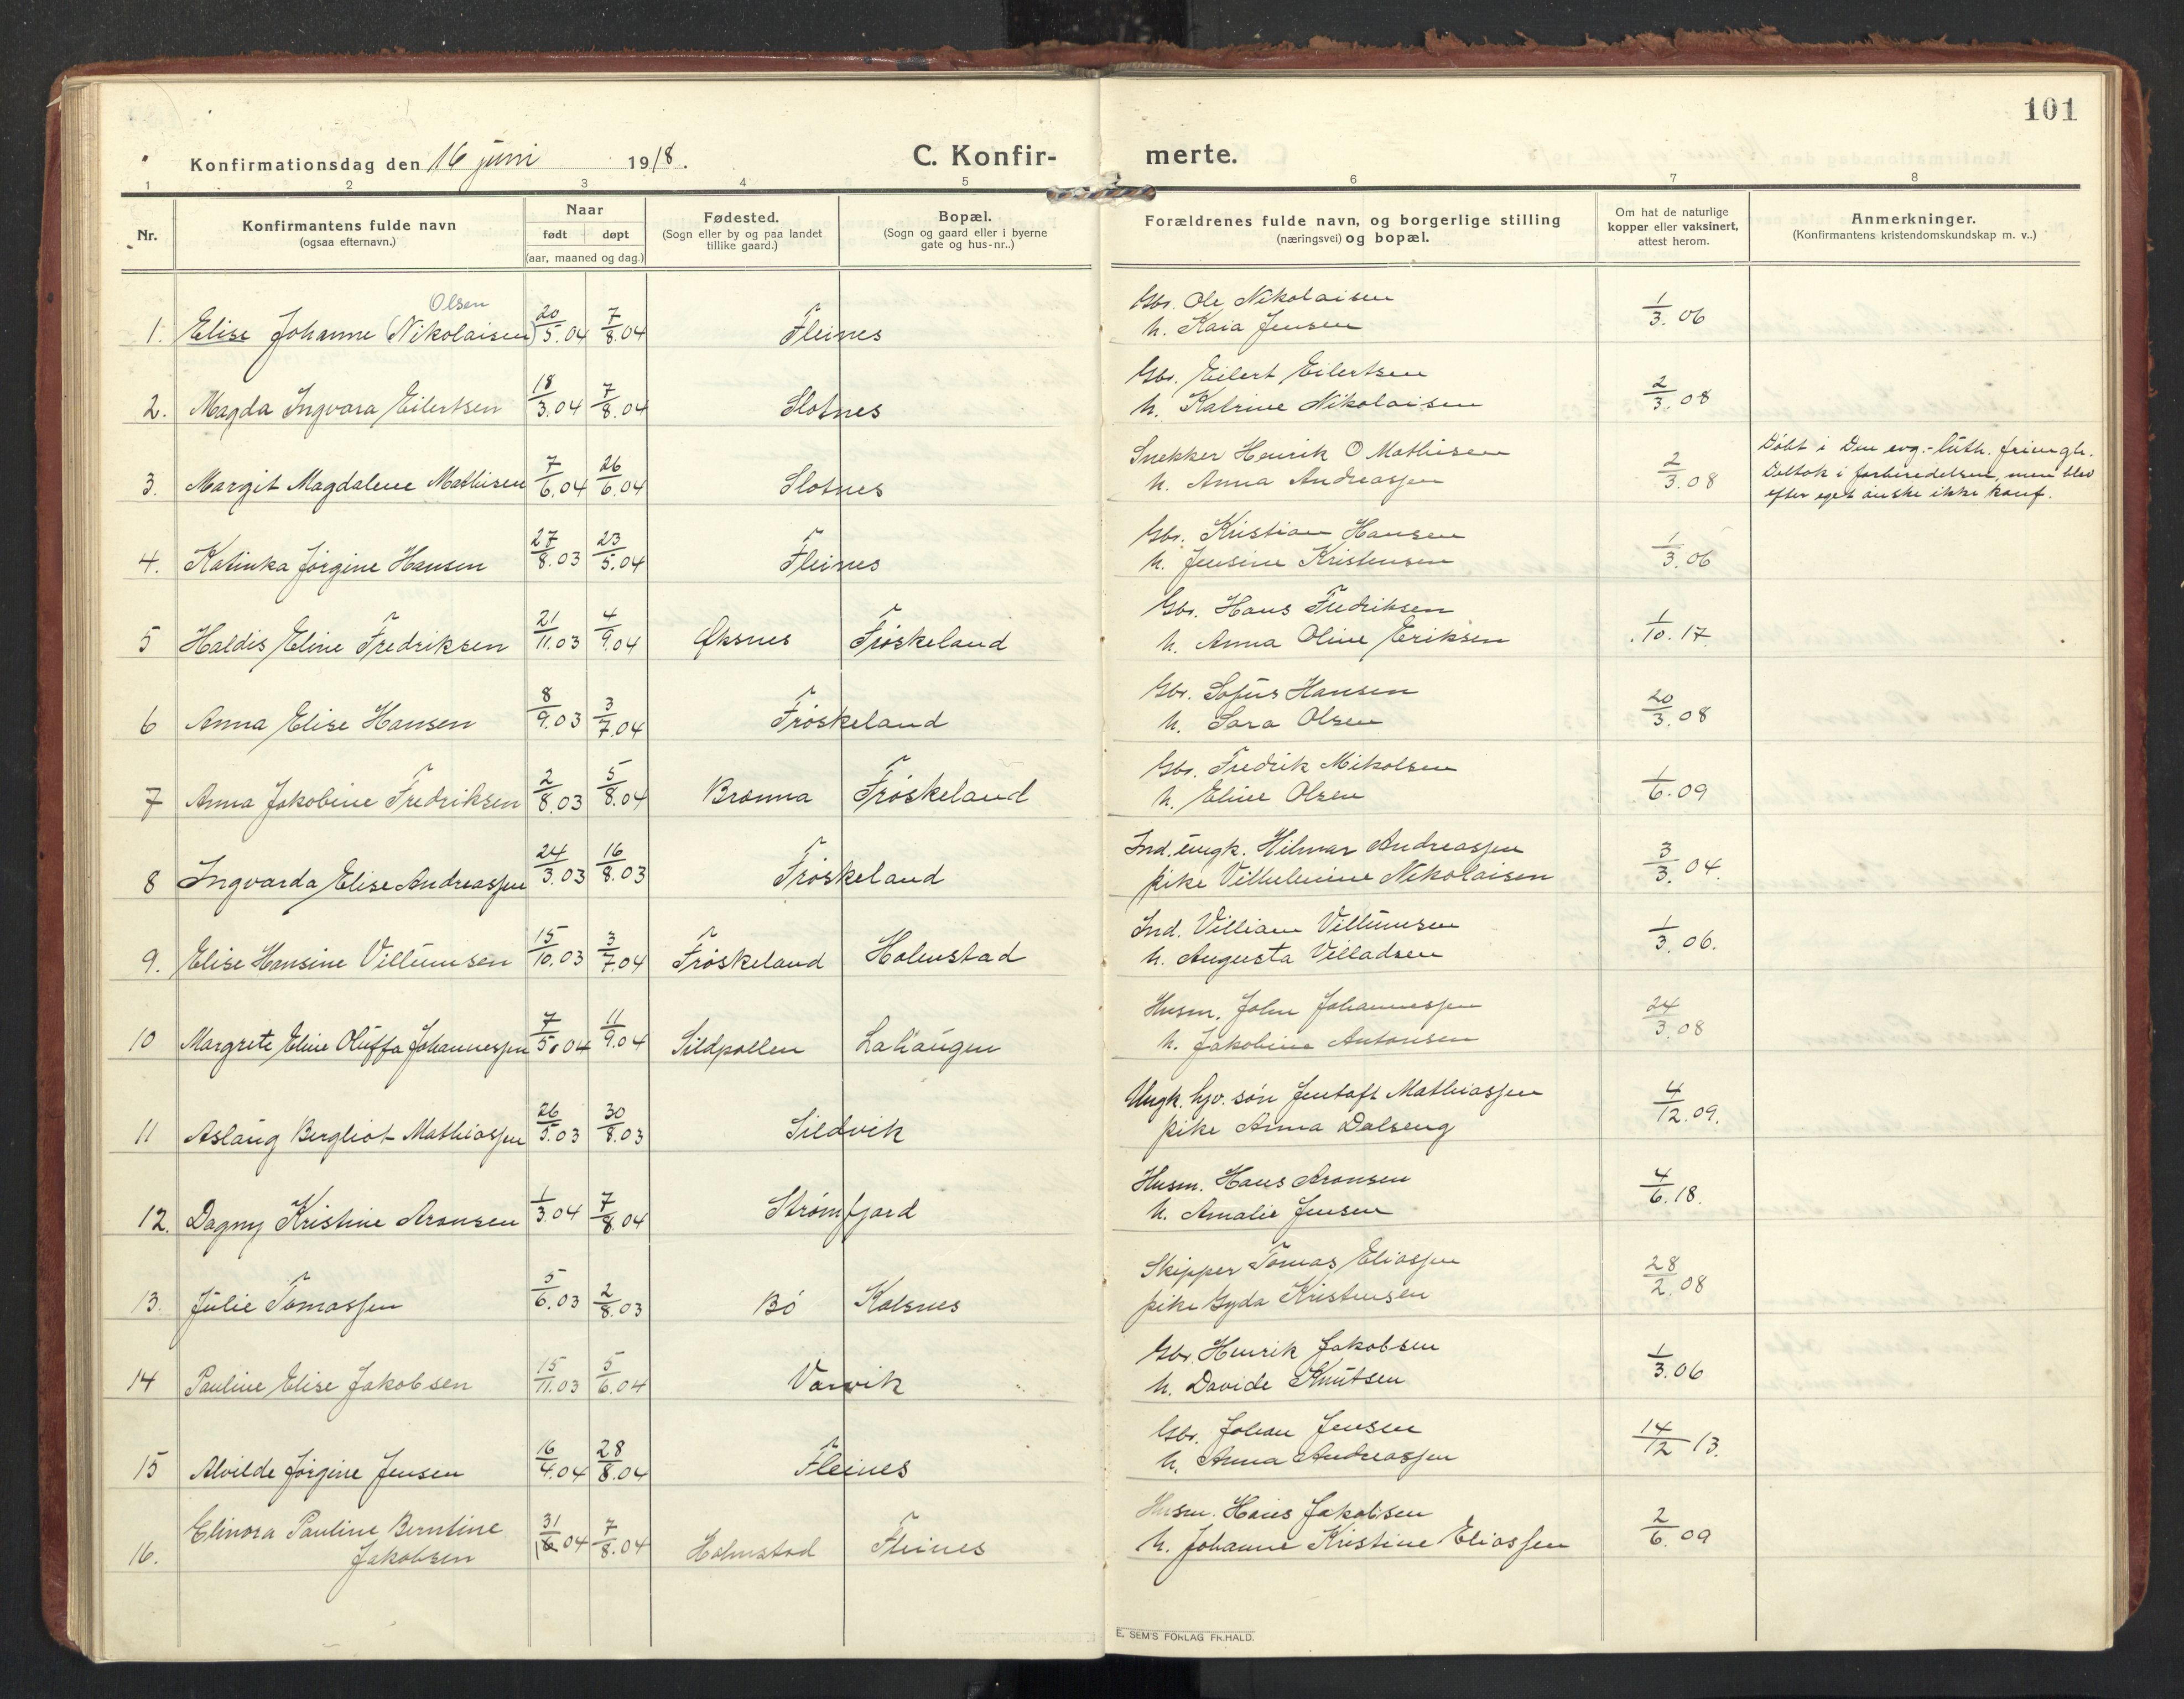 101
Konfirmationsdag den 16 juni 1918.
C. Konfir- merte.
1 2 3 4 5 6 7 8
Nr.
Konfirmantens fulde navn
(ogsaa efternavn.)
Naar
født døpt
(aar, maaned og dag.)
Fødested.
(Sogn eller by og paa landet
tillike gaard.)
Bopæl.
(Sogn og gaard eller i byerne
gate og hus-nr..)
Forældrenes fulde navn, og borgerlige stilling
(næringsvei) og bopæl.
Om hat de naturlige
kopper eller vaksinert,
attest herom.
Anmerkninger.
(Konfirmantens kristendomskundskap m. v..)
Olsen
1. Elise Johanne (Nikolaisen) 20/5.04 7/8.04 Fleines
Gbr. Ole Nikolaisen
h. Kaia Jensen
1/3.06
2. Magda Ingvara Eilertsen 18/3.04 7/8.04 Slotnes
Gbr. Eilert Eilertsen
h. Katrine Nikolaisen
2/3.08
3. Margit Magdalene Mathisen 7/6.04 26/6.04 Slotnes
Snekker Henrik O Mathisen
h. Anna Andreassen
2/3.08
Döbt i Den evg.-luth. frimgh.
Deltok i forberedelsen, men blev
efter eget önske ikke konf.
4. Katinka Jörgine Hansen 27/8.03 23/5.04 Fleines
Gbr. Kristian Hansen
h. Jensine Kristensen
1/3.06
5 Haldis Eline Fredriksen 21/11.03 4/9.04 Øksnes Fröskeland
Gbr. Hans Fredriksen
h. Anna Oline Eriksen
1/10.17
6 Anna Elise Hansen 8/9.03 3/7.04 Fröskeland
Gbr. Sofus Hansen
h. Sara Olsen
20/3.08
7 Anna Jakobine Fredriksen 2/8.03 5/8.04 Brønna Fröskeland
Gbr. Fredrik Mikolsen
h. Eline Olsen
1/6.09
8 Ingvarda Elise Andreassen 24/3.03 16/8.03 Fröskeland
Ind. ungk. Hilmar Andreassen
pike Vilhelmine Nikolaisen
3/3.04.
9. Elise Hansine Villumsen 15/10.03 3/7.04 Fröskeland Holmstad
Ind. Villiam Villumsen
h. Augusta Villadsen
1/3.06.
10 Margrete Eline Oluffa Johannessen 7/5.04 11/9.04 Sildpollen Lahaugen
Husm. John Johannessen
h. Jakobine Antonsen
24/3.08
11 Aslaug Bergliot Mathiassen 26/5.03 30/8.03 Sildvik
Ungk. hjv. sön Jentoft Mathiassen
pike Anna Dalseng
4/12.09.
12. Dagny Kristine Aronsen 1/3.04 7/8.04 Strømfjord
Husm. Hans Aronsen
h. Amalie Jensen
4/6.18.
13. Julie Tomassen 5/6.03 2/8.03 Bö Kalsnes
Skipper Tomas Eliassen
pike Gyda Kristensen
28/2.08
14 Pauline Elise Jakobsen 15/11.03 5/6.04 Varvik
Gbr. Henrik Jakobsen
h. Davide Knutsen
1/3.06
15 Alvilde Jörgine Jensen 16/4.04 28/8.04 Fleines
Gbr. Johan Jensen
h. Anna Andreassen
14/12 13.
16. Elinora Pauline Berntine
Jakobsen 31/04 7/8.04 Holmstad Fleines
Husm. Hans Jakobsen
h. Johanne Kristine Eliassen
2/6.09
E. SEM'S FORLAG FR.HALD.